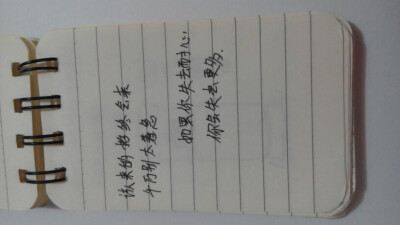 该来的都终会来
千万别太着急
如果你失去耐心
你会失去更多.